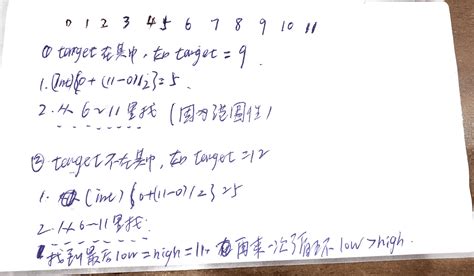 0 1 2 3 4 5 6 7 8 9 10 11
① target在其中,如 target = 9
1. (int){0 + (11-0)/2} = 5
2. 从 6~11里找 (因为范围性)
② target不在其中,如 target = 12
1. (int) {0+(11-0)/2} = 5
2. 从 6~11里找.
找到最后low=high=11. 再来一次循环 low>high.